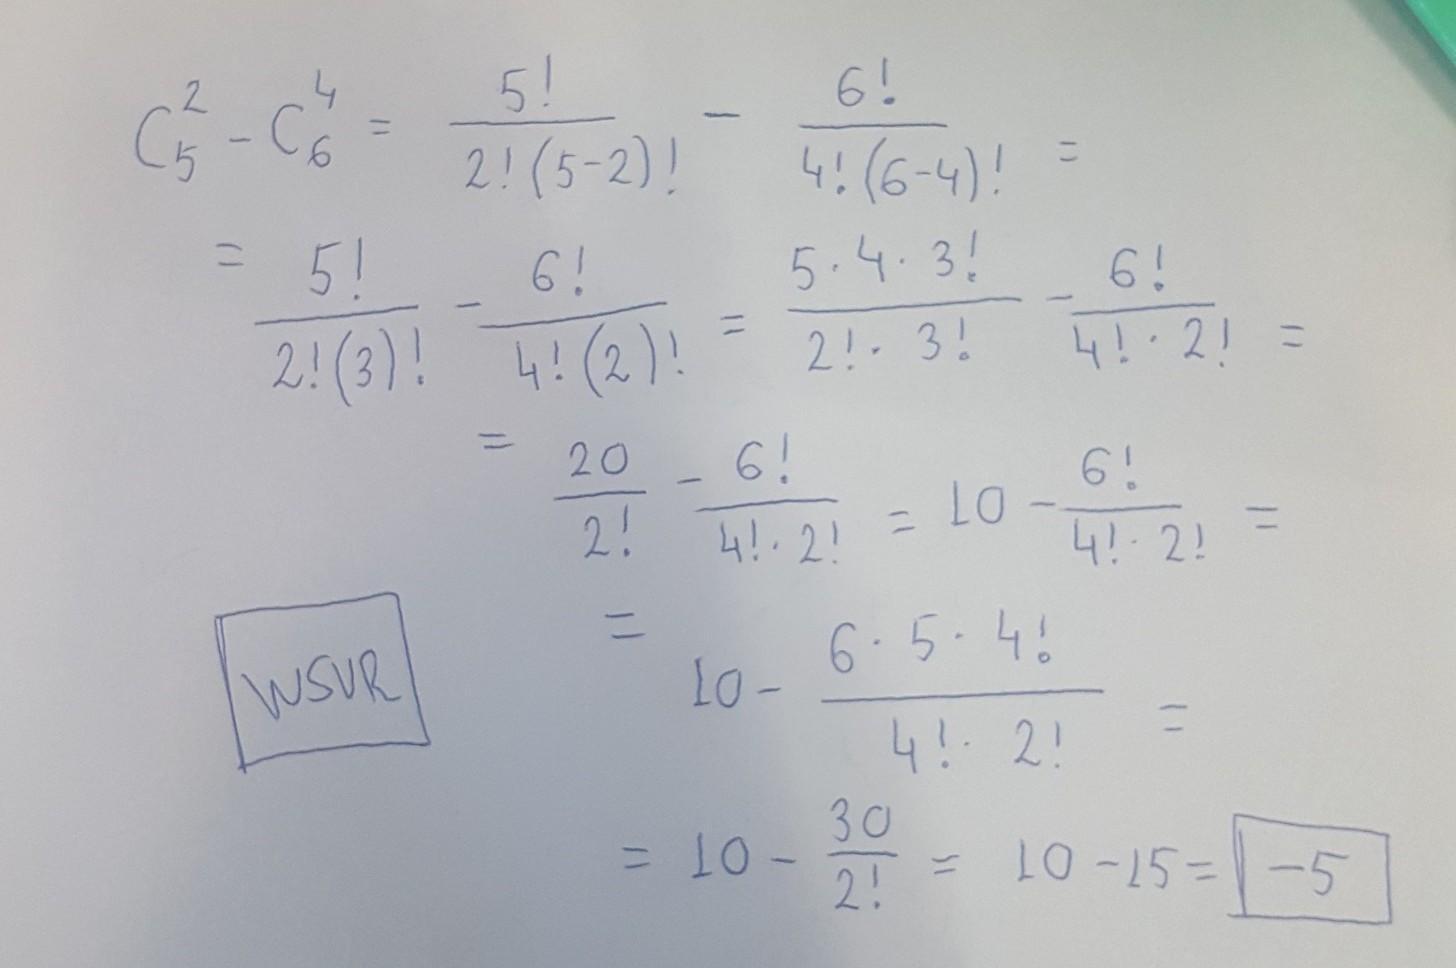 C₅² - C₆⁴ = 5!/(2!(5-2)!) - 6!/(4!(6-4)!) =
= 5!/(2!(3)!) - 6!/(4!(2)!) = (5·4·3!)/(2!·3!) - 6!/(4!·2!) =
= 20/2! - 6!/(4!·2!) = 10 - 6!/(4!·2!) =
= 10 - (6·5·4!)/(4!·2!) =
WSVR
= 10 - 30/2! = 10 - 15 = -5